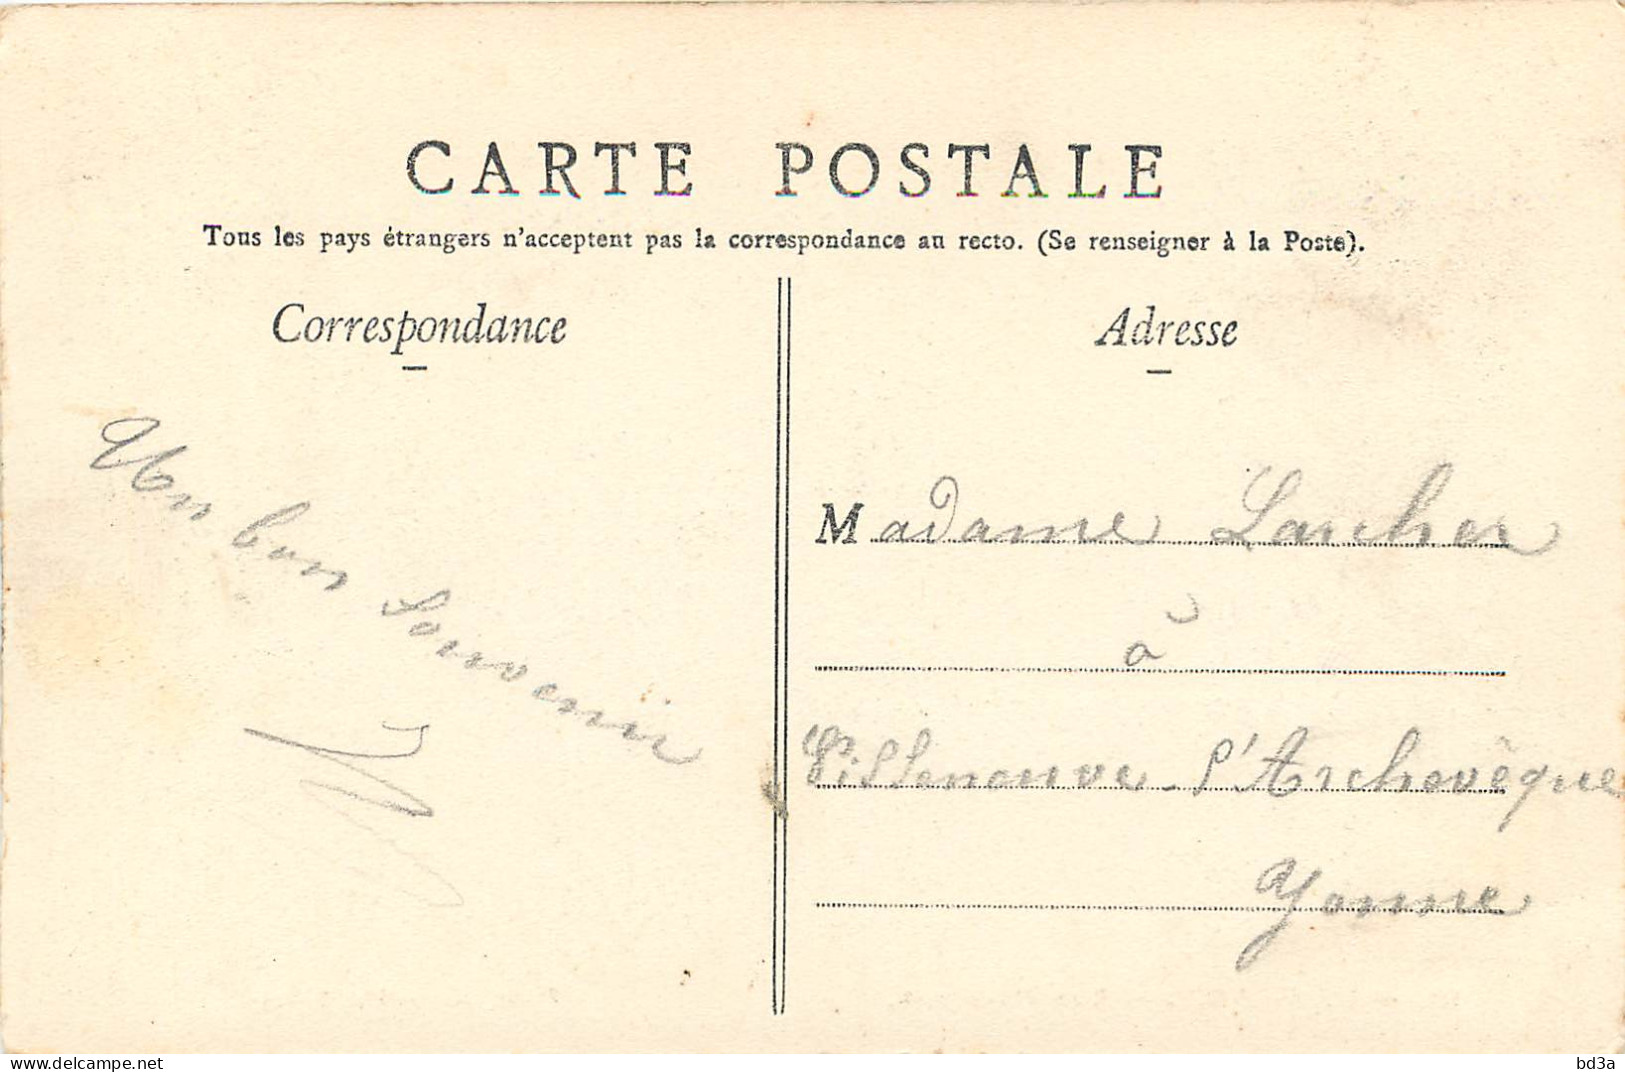 CARTE POSTALE
Tous les pays étrangers n'acceptent pas la correspondance au recto. (Se renseigner à la Poste).
Correspondance
Un bon Souvenir
Adresse
Madame Larcher
à
Villeneuve-l'Archevêque
Yonne
www.delcampe.net
bd3a